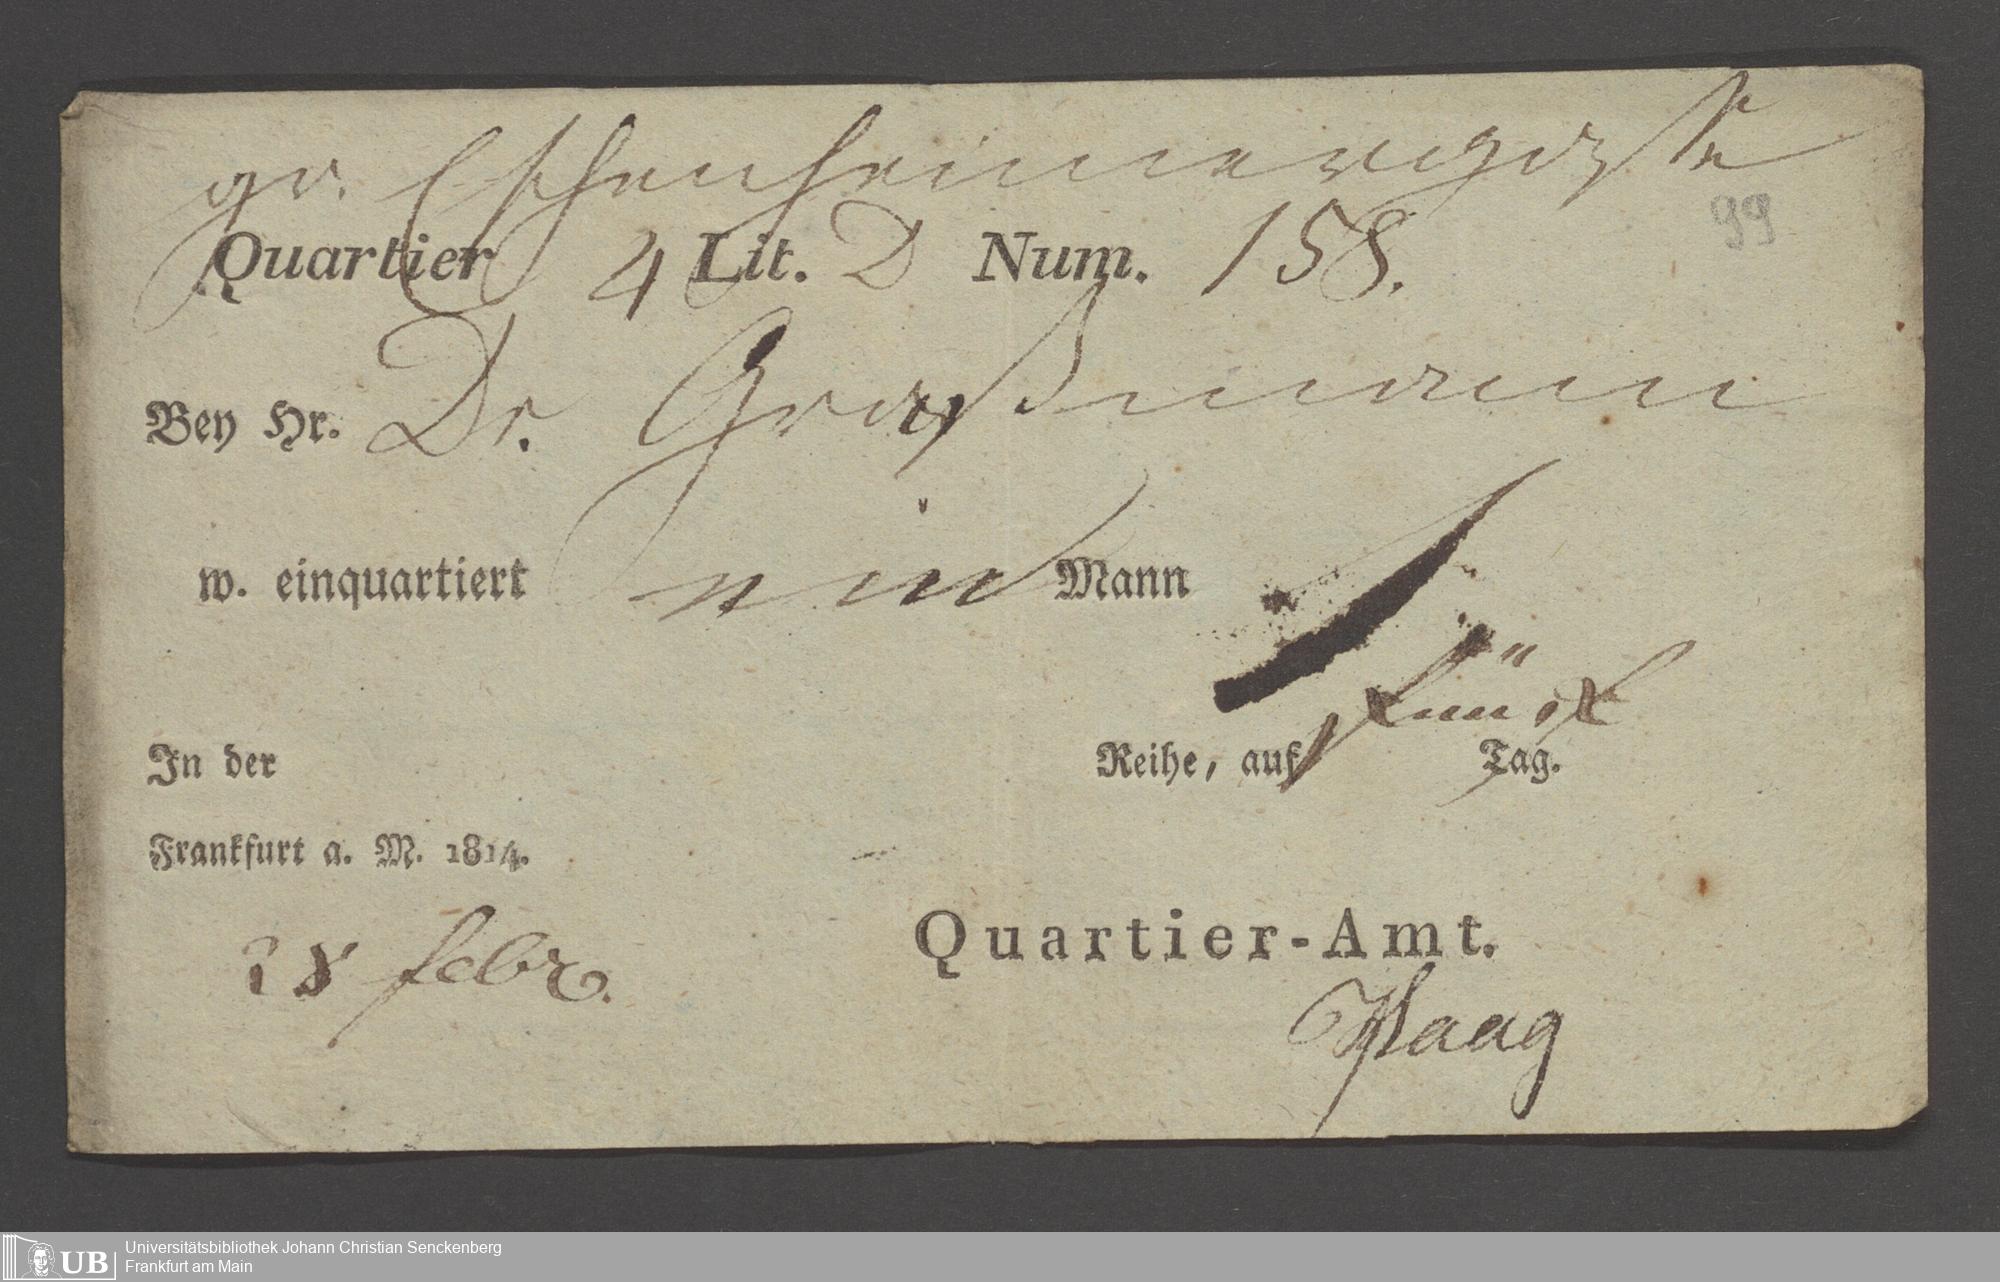 gr. Eschenheimergasse
99
Quartier 4 Lit. D Num. 158.
Bey Hr. Dr. Graßmann
w. einquartiert ein Mann
fünf
In der Reihe, auf Tag.
Frankfurt a. M. 1814.
28 febr.
Quartier-Amt.
Haag
UB Universitätsbibliothek Johann Christian Senckenberg
Frankfurt am Main